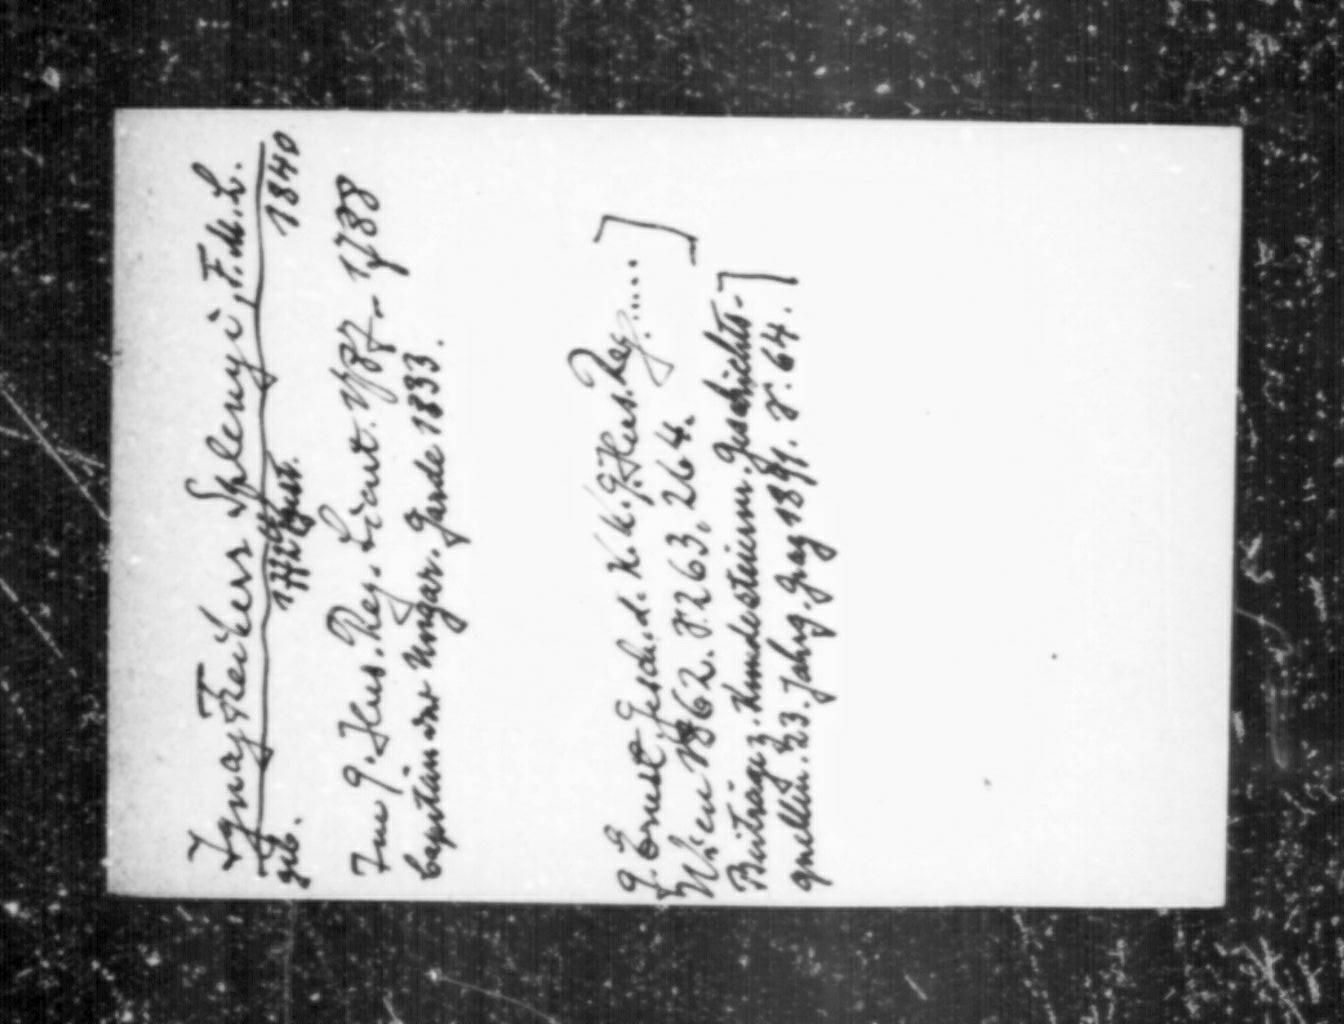 Ignaz Freiherr Splenyi, F.M.L.
geb. 1772 gest. 1840
Im 9. Hus. Reg. Lieut. 1787 - 1788
Capitän der Ungar. Garde 1833.
G. Ernst Gesch. d. K.K. 9. Hus. Reg.....]
Wien 1862. S. 263, 264.
Beiträge z. Kunde steierm. Geschichts-]
quellen. 23. Jahrg. Graz 1891. S. 64.]